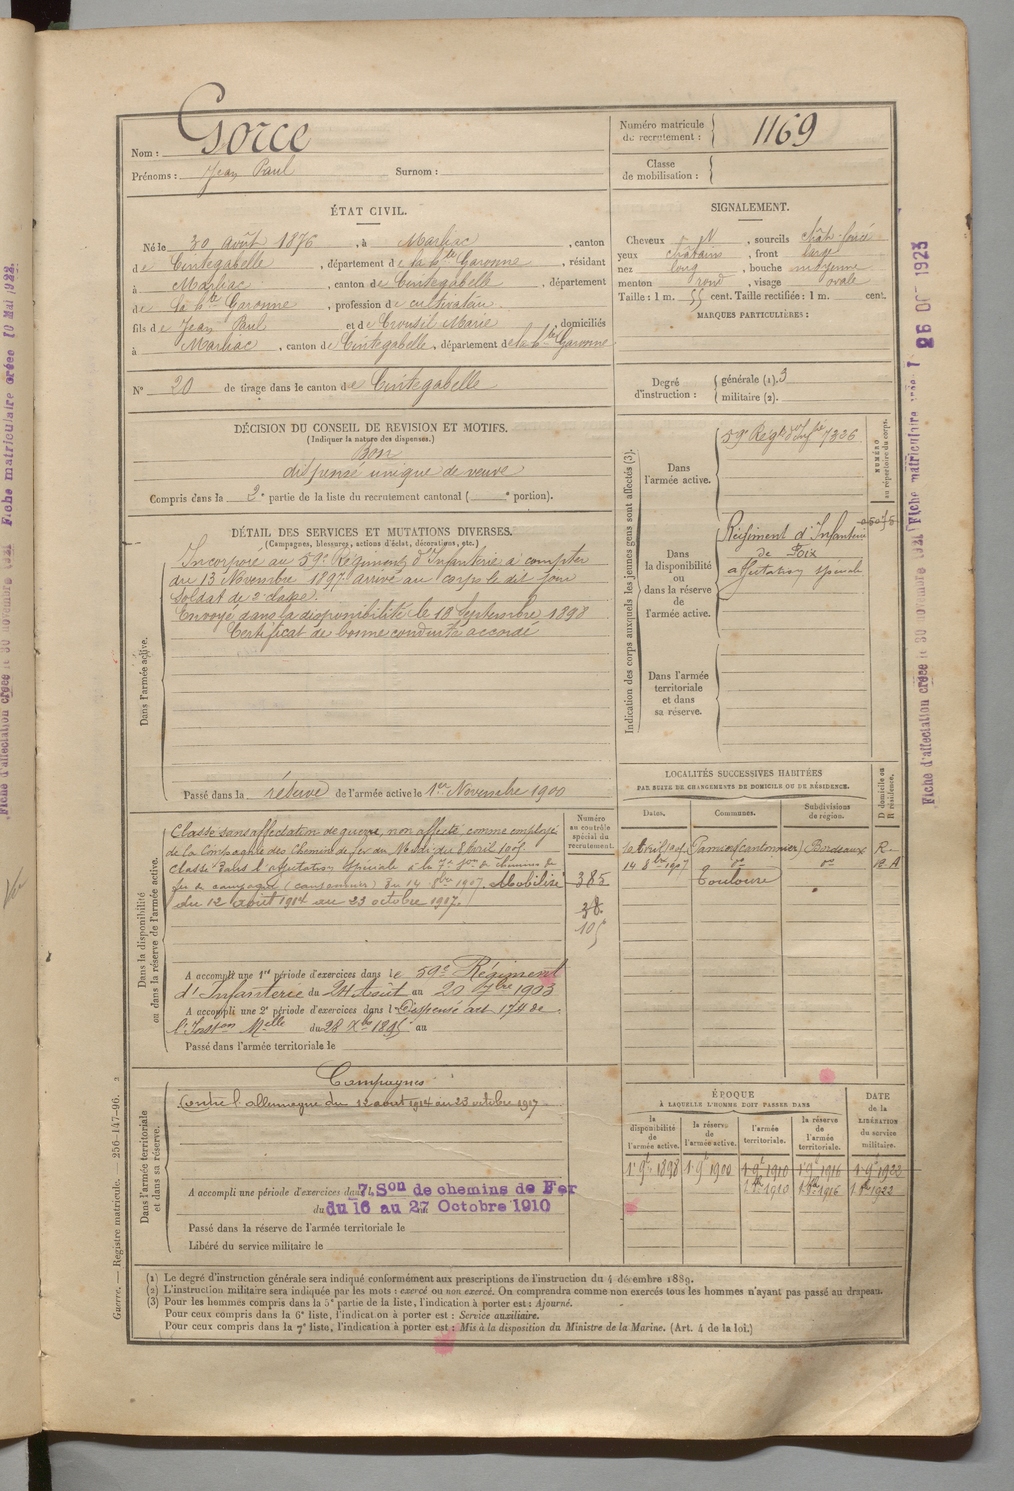 Nom : Gorce
Prénoms : Jean Paul Surnom :
Numéro matricule
du recrutement : 1169
Classe
de mobilisation :
ÉTAT CIVIL.
Né le 30 Août 1876, à Marliac, canton
de Cintegabelle, département de la hte Garonne, résidant
à Marliac, canton de Cintegabelle, département
de la hte Garonne, profession de cultivateur
fils de Jean Paul et de Trousil Marie, domiciliés
à Marliac, canton de Cintegabelle, département de la hte Garonne
N° 20 de tirage dans le canton de Cintegabelle
SIGNALEMENT.
Cheveux et, sourcils chât. foncé
yeux châtains, front large
nez long, bouche moyenne
menton rond, visage ovale
Taille : 1 m. 55 cent. Taille rectifiée : 1 m. cent.
MARQUES PARTICULIÈRES :
Degré
d'instruction :
générale (1). 3
militaire (2).
DÉCISION DU CONSEIL DE REVISION ET MOTIFS.
(Indiquer la nature des dispenses.)
Bon
dispensé unique de veuve
Compris dans la 2e partie de la liste du recrutement cantonal ( e portion).
DÉTAIL DES SERVICES ET MUTATIONS DIVERSES.
(Campagnes, blessures, actions d'éclat, décorations, etc.)
Dans l'armée active.
Incorporé au 59e Régiment d'Infanterie à compter
du 13 Novembre 1897, arrivé au corps le dit jour
Soldat de 2e classe.
Envoyé dans la disponibilité le 18 Septembre 1898
Certificat de bonne conduite accordé
Passé dans la réserve de l'armée active le 1er Novembre 1900
Indication des corps auxquels les jeunes gens sont affectés (3).
NUMÉRO
au répertoire du corps.
Dans
l'armée active.
59e Régt d'Infie 7326
Dans
la disponibilité
ou
dans la réserve
de
l'armée active.
Régiment d'Infanterie
de Foix
affectation spéciale
Dans l'armée
territoriale
et dans
sa réserve.
Dans la disponibilité
ou dans la réserve de l'armée active.
Classé sans affectation de guerre, non affecté comme employé
de la Compagnie des Chemins de fer du Midi du 8 Avril 1905
Classé dans l'affectation spéciale à la 7e son de chemins de
fer de campagne (cantonnier) du 14 8bre 1907. Mobilisé
du 12 août 1914 au 23 octobre 1917.
Numéro
au contrôle
spécial du
recrutement.
385
38
105
A accompli une 1re période d'exercices dans le 59e Régiment
d'Infanterie du 24 Août au 20 7bre 1903
A accompli une 2e période d'exercices dans l Dispensé art. 174 de
l'Inston Melle du 28 Xbre 1895 au
Passé dans l'armée territoriale le
LOCALITÉS SUCCESSIVES HABITÉES
PAR SUITE DE CHANGEMENTS DE DOMICILE OU DE RÉSIDENCE.
Dates. Communes. Subdivisions
de région.
D domicile ou
R résidence.
Avril 1905 Pamiers (cantonnier) Bordeaux R
14 8bre 1907 do do R.A
Toulouse
Dans l'armée territoriale
et dans sa réserve.
Campagnes
Contre l'allemagne du 12 août 1914 au 23 octobre 1917
A accompli une période d'exercices dans la 7e Son de chemins de Fer
du 16 au 27 Octobre 1910
Passé dans la réserve de l'armée territoriale le
Libéré du service militaire le
ÉPOQUE
À LAQUELLE L'HOMME DOIT PASSER DANS
la
disponibilité
de
l'armée active.
la réserve
de
l'armée active.
l'armée
territoriale.
la réserve
de
l'armée
territoriale.
DATE
de la
LIBÉRATION
du service
militaire.
1er 9bre 1898 1er 9bre 1900 1er 9bre 1910 1er 9bre 1916 1er 9bre 1922
1er 8bre 1910 1er 8bre 1916 1er 8bre 1922
(1) Le degré d'instruction générale sera indiqué conformément aux prescriptions de l'instruction du 4 décembre 1889.
(2) L'instruction militaire sera indiquée par les mots : exercé ou non exercé. On comprendra comme non exercés tous les hommes n'ayant pas passé au drapeau.
(3) Pour les hommes compris dans la 5e partie de la liste, l'indication à porter est : Ajourné.
Pour ceux compris dans la 6e liste, l'indication à porter est : Service auxiliaire.
Pour ceux compris dans la 7e liste, l'indication à porter est : Mis à la disposition du Ministre de la Marine. (Art. 4 de la loi.)
Guerre. — Registre matricule. 256-147-96.
Fiche d'affectation créée le 30 novembre 1921 Fiche matriculaire créée 10 Mai 1922.
Fiche d'affectation créée le 30 novembre 1921 Fiche matriculaire créée 26 OCT 1923